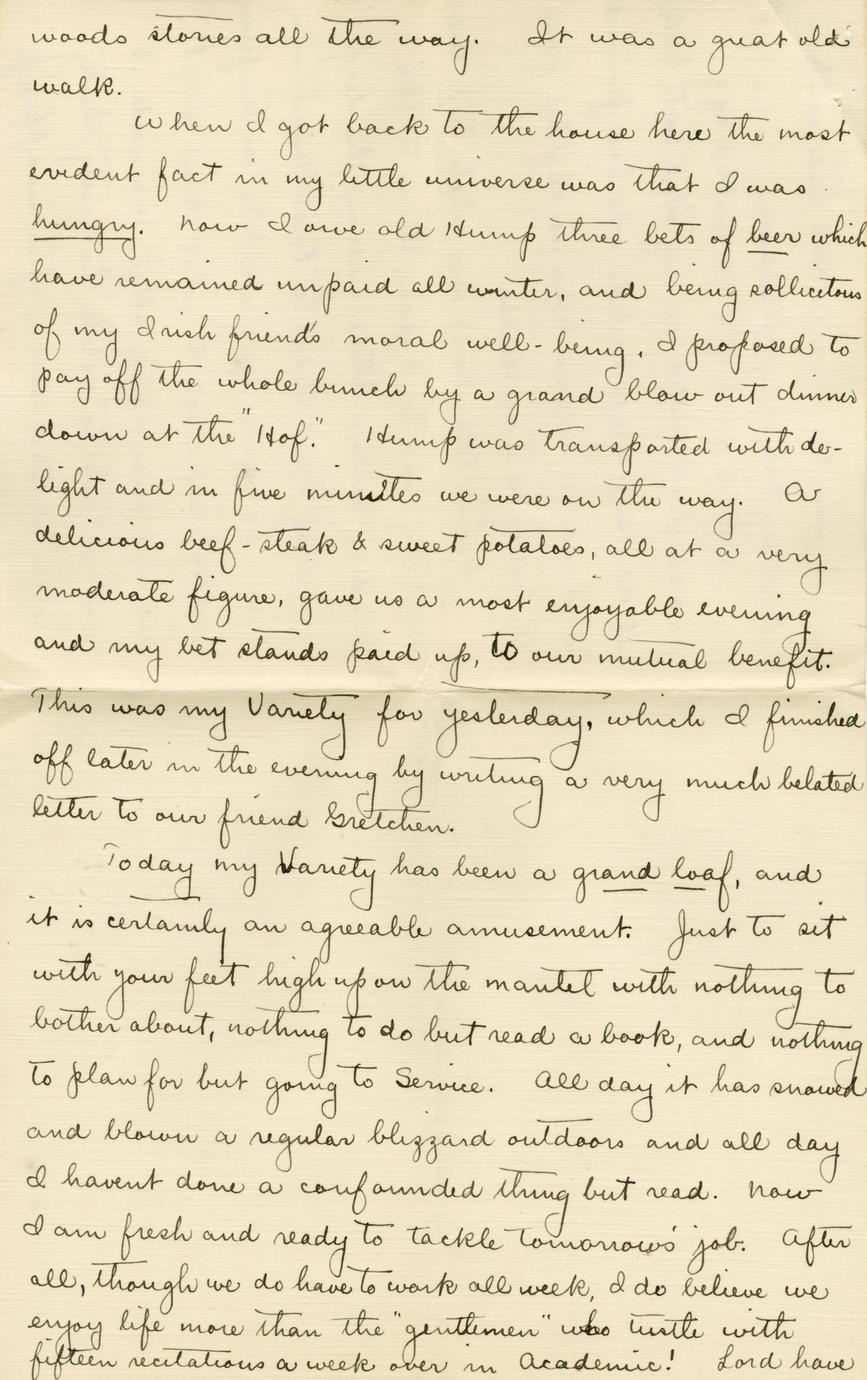 woods stories all the way. It was a great old
walk.
When I got back to the house here the most
evident fact in my little universe was that I was
hungry. Now I owe old Hump three bets of beer which
have remained unpaid all winter, and being sollicitous
of my Irish friend's moral well-being, I proposed to
pay off the whole bunch by a grand blow out dinner
down at the "Hof." Hump was transported with de-
light and in five minutes we were on the way. A
delicious beef-steak & sweet potatoes, all at a very
moderate figure, gave us a most enjoyable evening
and my bet stands paid up, to our mutual benefit.
This was my Variety for yesterday, which I finished
off later in the evening by writing a very much belated
letter to our friend Gretchen.
Today my Variety has been a grand loaf, and
it is certainly an agreeable amusement. Just to sit
with your feet high up on the mantel with nothing to
bother about, nothing to do but read a book, and nothing
to plan for but going to Service. All day it has snowed
and blown a regular blizzard outdoors and all day
I havent done a confounded thing but read. Now
I am fresh and ready to tackle tomorrows' job. After
all, though we do have to work all week, I do believe we
enjoy life more than the "gentlemen" who tustle with
fifteen recitations a week over in Academic! Lord have